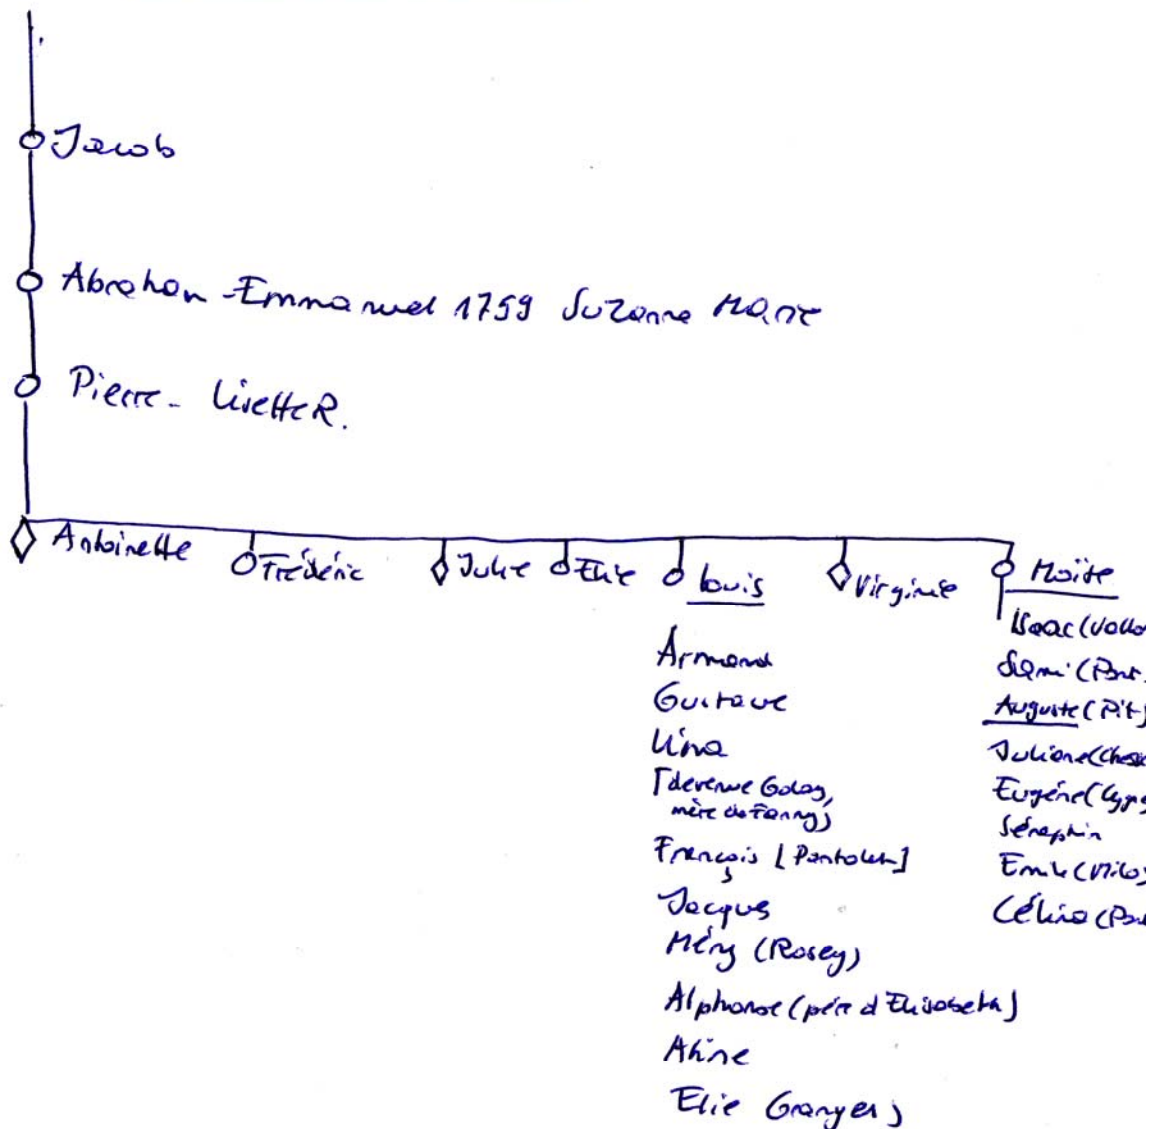 Jacob
Abraham-Emmanuel 1759 Suzanne Marie
Pierre - Lisette R.
Antoinette Frédéric Julie Elie Louis Virginie Moïse
Armand
Gustave
Lina
[devenue Golay,
mère de Fanny)
François [Pantolet]
Jacques
Méry (Rosey)
Alphonse (père d'Elisabeth)
Aline
Elie Granges)
Isaac (
Sami (
Auguste (Pit)
Juliane (
Eugène (
Séraphin
Emile (Milo)
Célina (